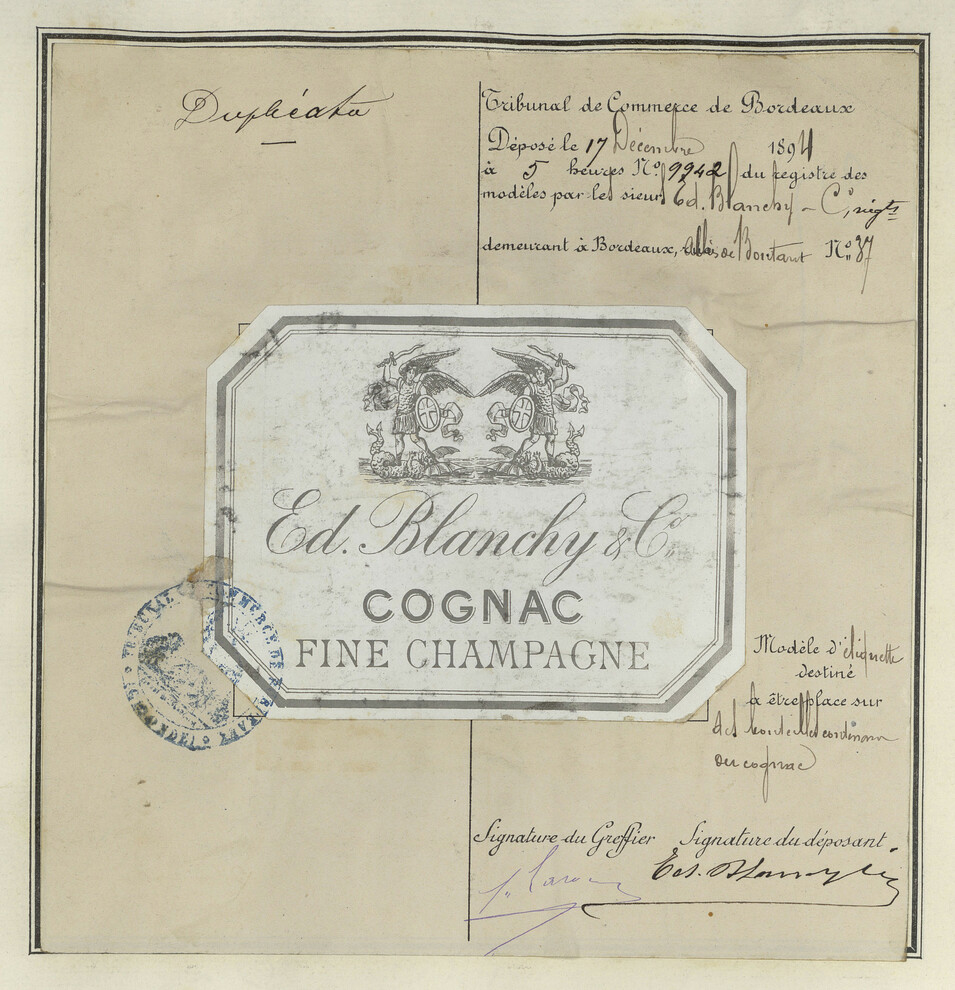 Duplicata
Tribunal de Commerce de Bordeaux
Déposé le 17 Décembre 1894
à 5 heures N° 9942 du registre des
modèles par les sieurs Ed. Blanchy - Cie, négts
demeurant à Bordeaux, allées de Boutaut N° 37
Ed. Blanchy & Co
COGNAC
FINE CHAMPAGNE
TRIBUNAL DE COMMERCE DE BORDEAUX
Modèle d'étiquette
destiné
à être place sur
des bouteilles contenant
du cognac
Signature du Greffier Signature du déposant
Ed. Blanchy & Cie